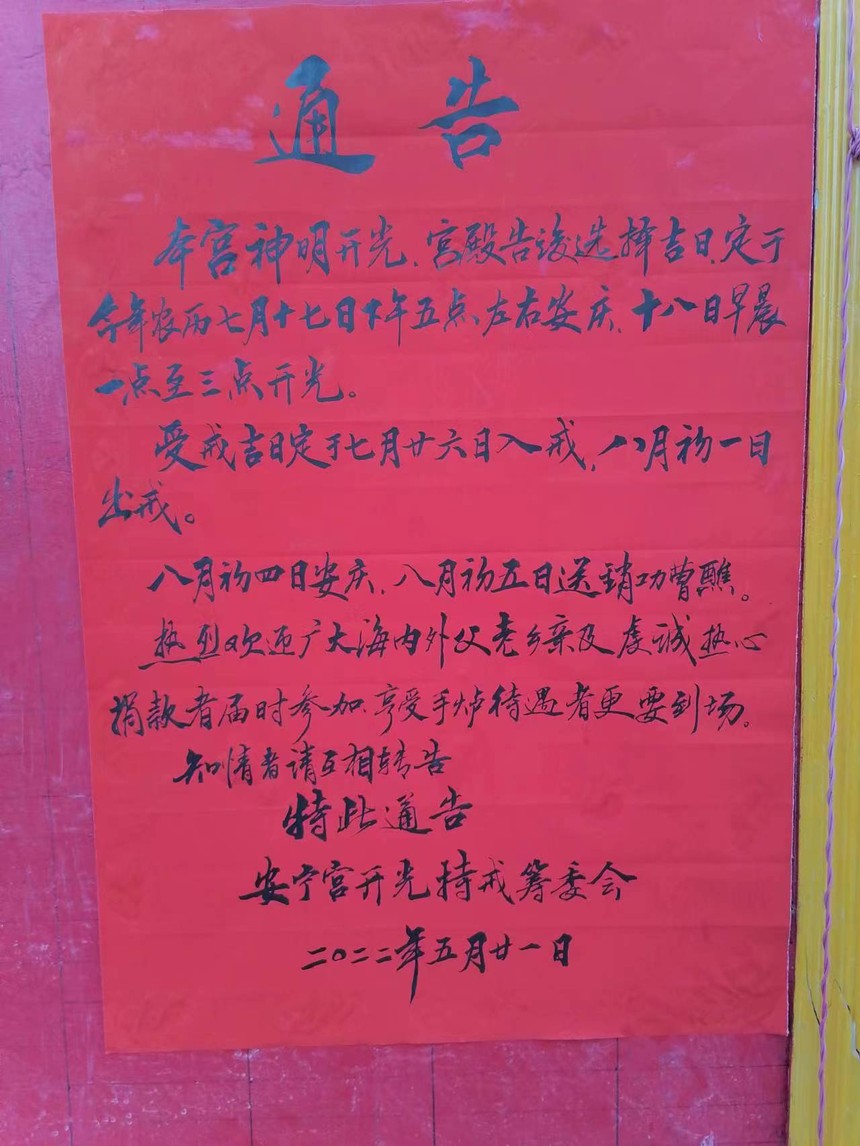 通告
本宫神明开光、宫殿告竣选择吉日,定于
今年农历七月十七日下午五点左右安庆、十八日早晨
一点至三点开光。
受戒吉日定于七月廿六日入戒,八月初一日
出戒。
八月初四日安庆,八月初五日送銷功曹醮。
热烈欢迎广大海内外父老乡亲及虔诚热心
捐款者届时参加,享受手炉待遇者更要到场。
知情者请互相转告
特此通告
安宁宫开光持戒筹委会
二〇二二年五月廿一日